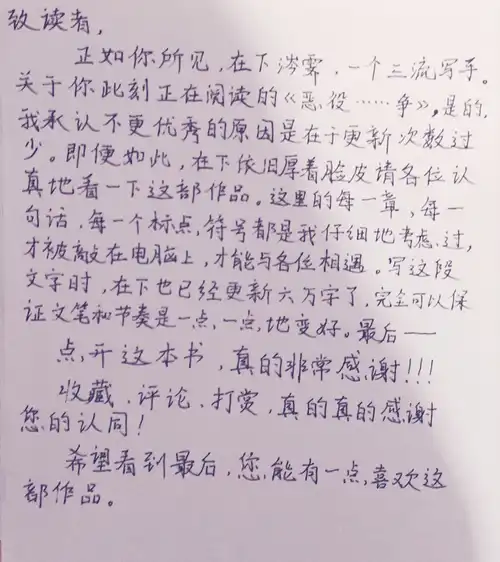 致读者，
正如你所见，在下涔霁，一个三流写手。
关于你此刻正在阅读的《恶役……争》，是的，
我承认不更优秀的原因是在于更新次数过
少。即便如此，在下依旧厚着脸皮请各位认
真地看一下这部作品。这里的每一章、每一
句话，每一个标点，符号都是我仔细地考虑过，
才被敲在电脑上，才能与各位相遇。写这段
文字时，在下也已经更新六万字了，完全可以保
证文笔和节奏是一点，一点地变好。最后——
点开这本书，真的非常感谢！！！
收藏、评论、打赏，真的真的感谢
您的认同！
希望看到最后，您能有一点喜欢这
部作品。